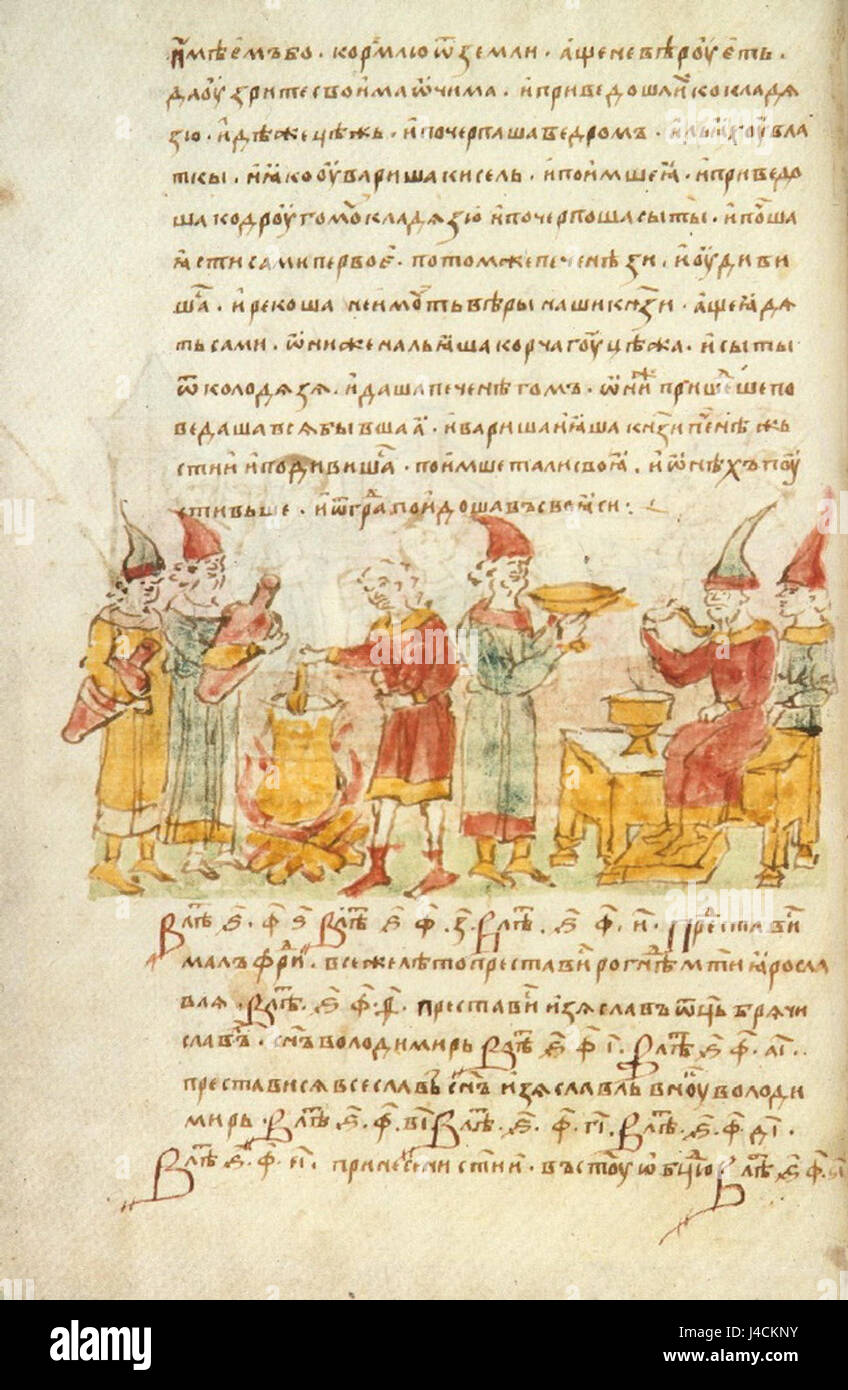 имѣемъ бо · кормлю ѿ земли · аще не вѣрꙋеть ·
да оузрите своима ѡчима · и приведоша и к колодѧ
зю · идѣже цѣжь · и почерпаша ведромъ · и льꙗхоу в ла
ткы · и ꙗко оувариша кисель · и поимше ꙗ · и приведо
ша к дроугомꙋ кладѧзю и почерпоша сыты · и поча
ꙗсти сами первое · потом же печенѣзи · и оудиви
шасѧ · и рекоша не имꙋть вѣры наши кнѧзи · аще не ꙗдѧ
ть сами · ѡни же нальꙗша корчагоу цѣжа · и сыты
ѿ колодѧзѧ · и даша печенѣгомъ · ѡни же пришедше по
ведаша всѧ бывшаꙗ · и вариша и ꙗша кнѧзи печенѣжь
стии и подивишасѧ · поимше тали своꙗ · и ѡнѣхъ поу
стивыше · и ѿ града поидоша въ своꙗси :
В лѣтⷪ ѕ҃ · ф҃ ѕ҃ В лѣтⷪ ѕ҃ ф҃ · з҃ · В лѣтⷪ · ѕ҃ ф҃ · и҃ · Престависѧ
малъфрѣдь · в се же лѣто престависѧ рогънѣдь мт҃и ꙗросла
влѧ · В лѣтⷪ · ѕ҃ ф҃ · ѳ҃ · престависѧ изѧславъ ѿць брѧчи
славль · сн҃ъ володимирь В лѣтⷪ ѕ҃ ф҃ і҃ · В лѣтⷪ ѕ҃ ф҃ · аі҃ ·
преставися всеславъ сн҃ъ изѧславль внꙋкъ володи
мирь · В лѣтⷪ · ѕ҃ · ф҃ · ві҃ В лѣтⷪ · ѕ҃ · ф҃ · гі҃ · В лѣтⷪ · ѕ҃ · ф҃ · ді҃ ·
В лѣтⷪ ѕ҃ · ф҃ · еі҃ · принесени ст҃ии · въ ст҃оую бц҃ю В лѣтⷪ ѕ҃ ф҃ · ѕі҃
alamy
Image ID: J4CKNY
www.alamy.com